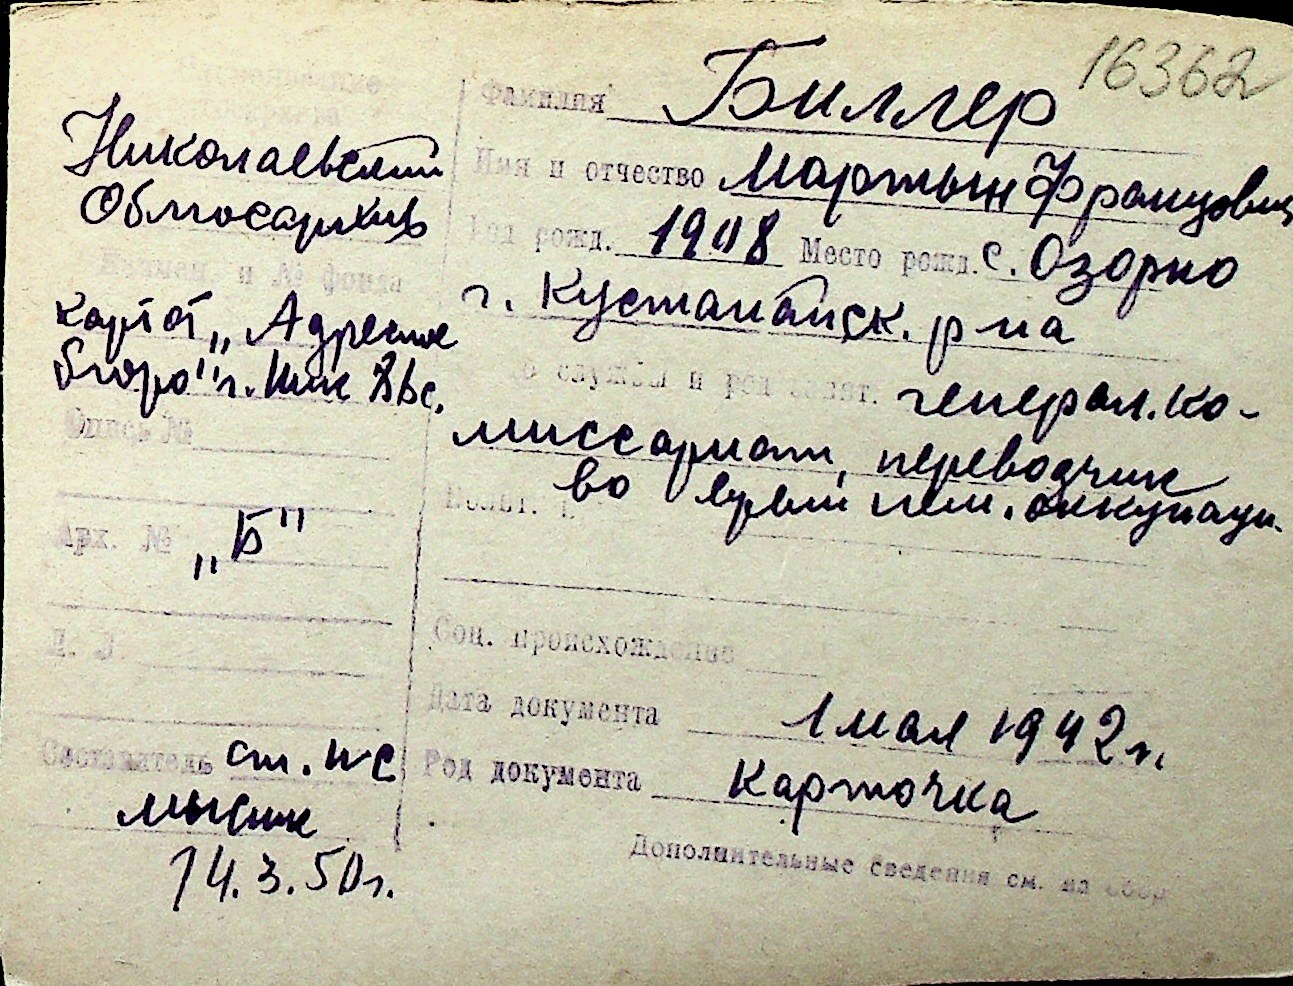 16362
Наименование
архива
Николаевский
Облгосархив
Наимен. и № фонда
карт. „Адресное
бюро" г.
Опись №
Арх. № „Б"
Составитель ст. н/с
14.3.50г.
Фамилия Биллер
Имя и отчество Мартын Францович
Год рожд. 1908 Место рожд. с. Озорно
г. Кустанайск. р-на
службы и род занят. генерал. ко-
миссариат, переводчик
во время нем. оккупации
Соц. происхождение
Дата документа 1 мая 1942 г.
Род документа Карточка
Дополнительные сведения см. на обор